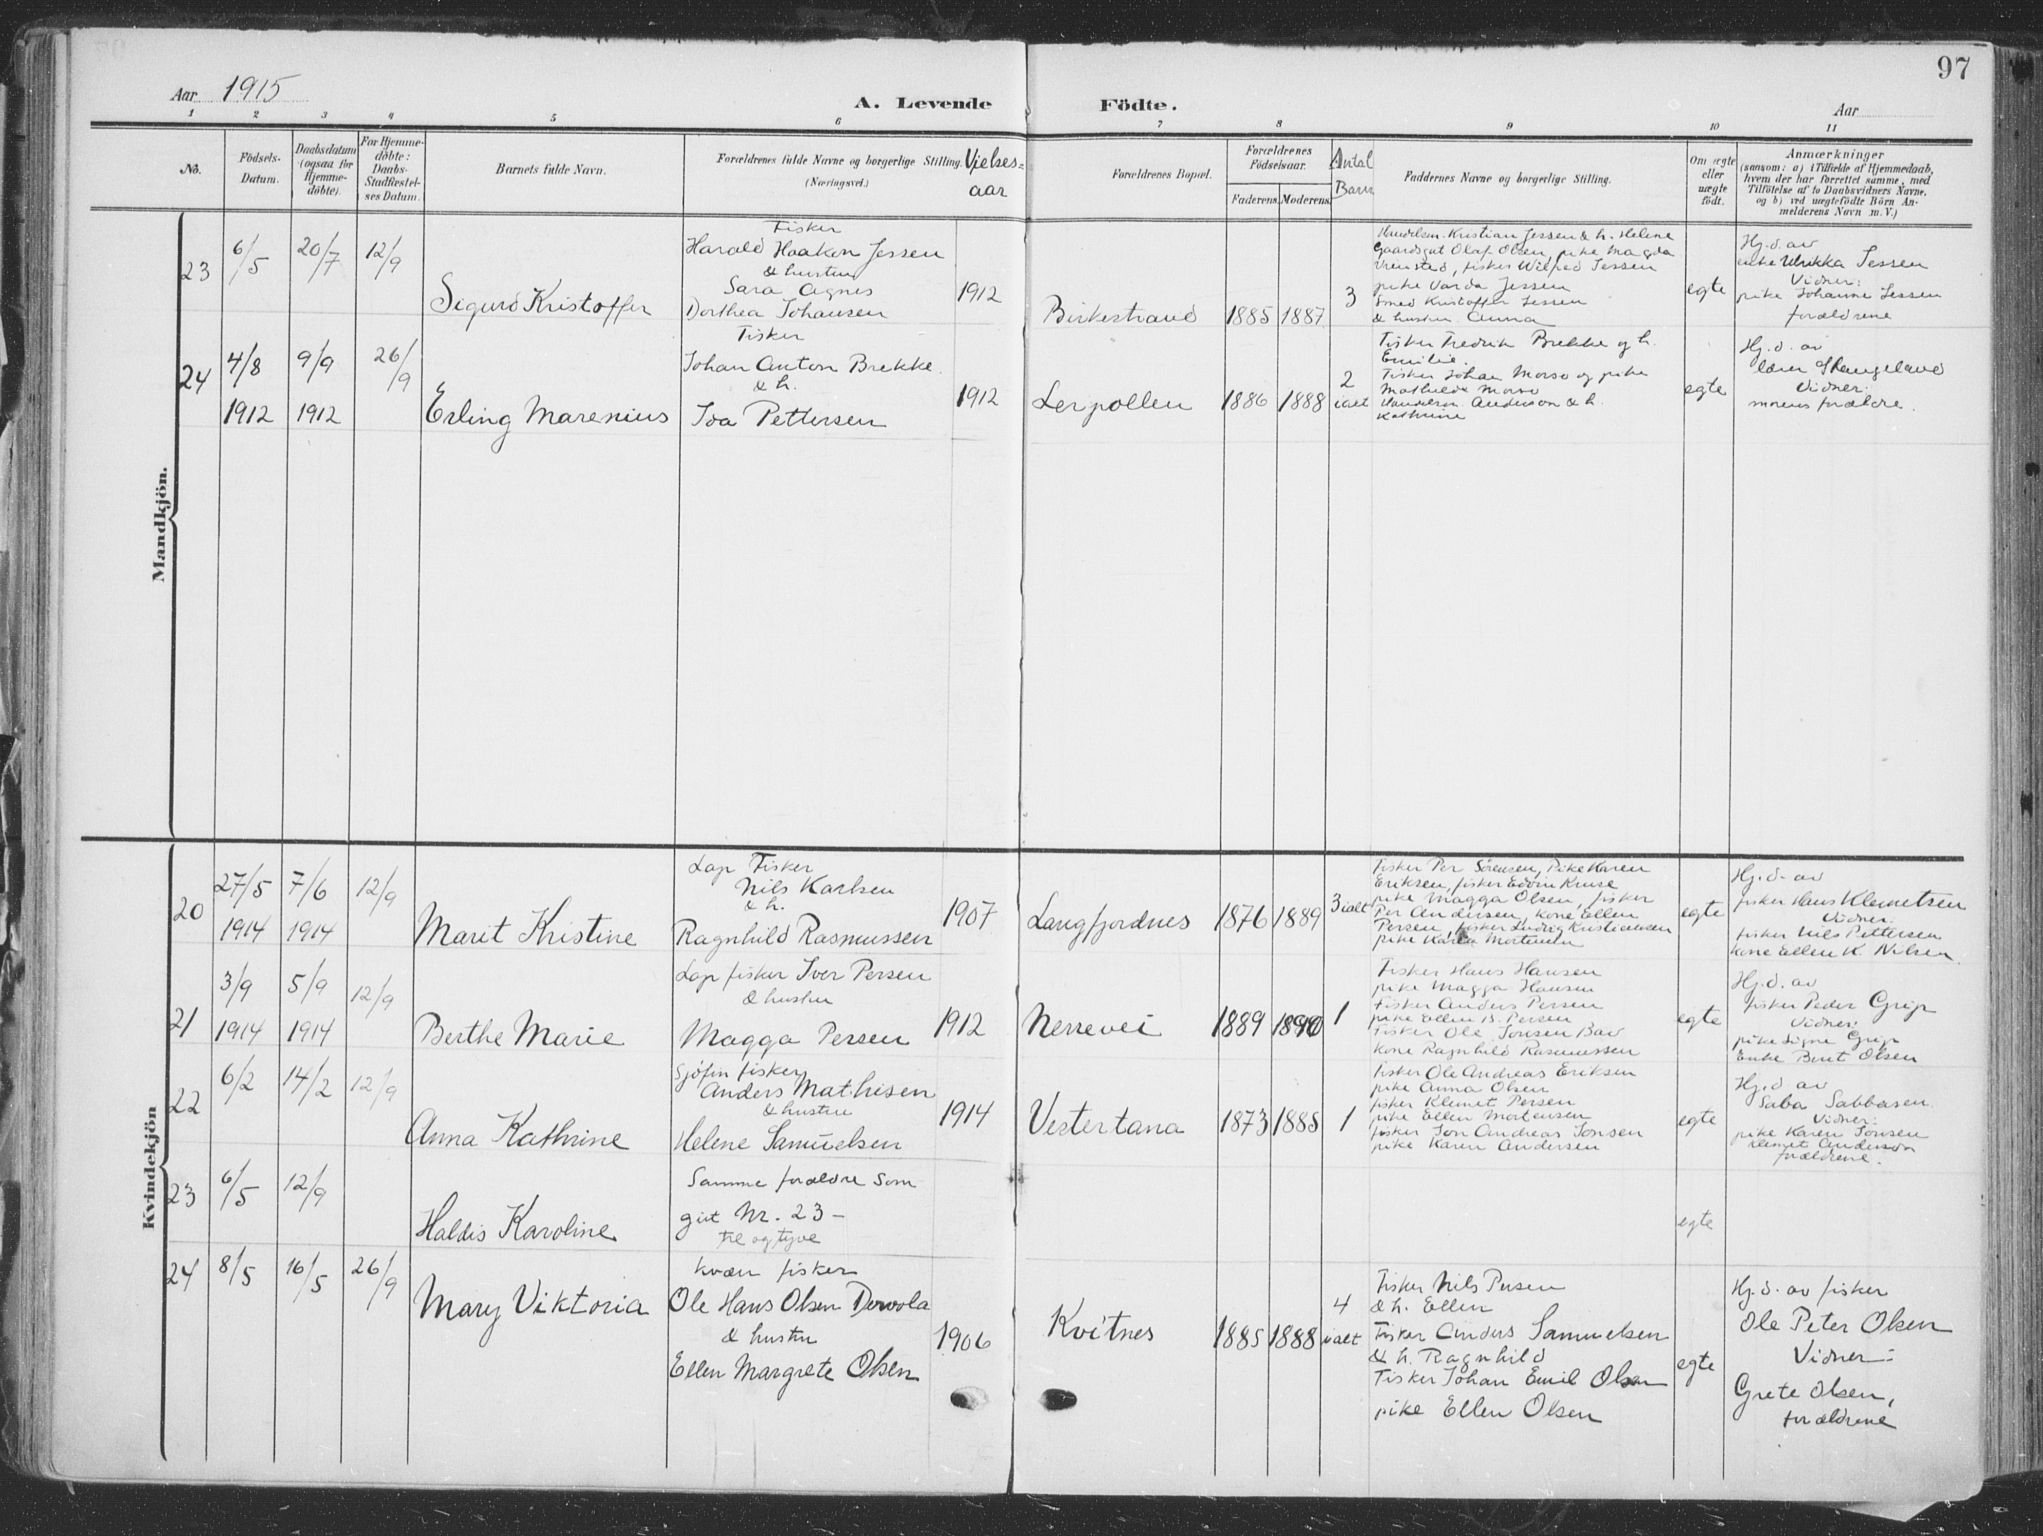 97
Aar 1915
A. Levende Födte.
Aar
1 2 3 4 5 6 7 8 9 10 11
No.
Födsels-
Datum.
Daabsdatum
(ogsaa for
Hjemme-
döbte).
For Hjemme-
döbte:
Daabs-
Stadfæstel-
ses Datum.
Barnets fulde Navn.
Forældrenes fulde Navne og borgerlige Stilling.
(Næringsvei.)
Vielses-
aar
Forældrenes Bopæl.
Forældrenes
Födselsaar.
Faderens. Moderens.
Antal
Barn
Faddernes Navne og borgerlige Stilling.
Om ægte
eller
uægte
födt.
Anmærkninger
(saasom: a) i Tilfælde af Hjemmedaab,
hvem der har forrettet samme, med
Tilföielse af to Daabsvidners Navne,
og b) ved uægtefödte Börn An-
melderens Navn m.V.)
Mandkjön.
23
6/5
20/7
12/9
Sigurd Kristoffer
Fisker
Harald Haakon Jessen
& hustru
Sara Agnes
Dorthea Johansen
1912
Birkestrand
1885 1887
3
Handelsm. Kristian Jessen & h. Helene
Gaardsgut Olaf Olsen, pike Magda
fisker Wilfred Jessen
pike Varda Jessen
Smed Kristoffer Jessen
& hustru Anna
egte
Hj.d. av
enke Ulrikka Jessen
Vidner:
pike Johanne Jessen
forældrene
24
4/8
1912
9/9
1912
26/9
Erling Marenius
Fisker
Johan Anton Brekke
& h.
Ida Pettersen
1912
Lerpollen
1886 1888
2
ialt
Fisker Fredrik Brekke og h.
Emilie.
Fisker Johan Morso og pike
Mathilde Morso
Handelsm. Anderson & h.
Kathrine
egte
Hj.d. av
lærer Skangeland
Vidner:
morens forældre.
Kvindekjön
20
27/5
1914
7/6
1914
12/9
Marit Kristine
Lap Fisker
Nils Karlsen
& h.
Ragnhild Rasmussen
1907
Langfjordnes
1876 1889
3 ialt
Fisker Per Sörensen, Pike Karen
Eriksen, fisker Edvin Kruse
pike Magga Olsen, fisker
Per Andersen, kone Ellen
Persen, fisker Ludvig Kristiansen
pike Karen Mortensen
egte
Hj.d. av
fisker Hans Klemetsen
Vidner:
fisker Nils Pettersen
kone Ellen K. Nilsen.
21
3/9
1914
5/9
1914
12/9
Berthe Marie
Lap fisker Iver Persen
& hustru
Magga Persen
1912
Nerrevei
1889 1890
1
Fisker Hans Hansen
pike Magga Hansen
Fisker Anders Persen
pike Ellen B. Persen
Fisker Ole Jonsen Bav
kone Ragnhild Rasmussen
egte
Hj.d. av
fisker Peder Grip
Vidner:
pike Signe Grip
Enke Berit Olsen
22
6/2
14/2
12/9
Anna Kathrine
Sjöfin fisker
Anders Mathisen
& hustru
Helene Samuelsen
1914
Vestertana
1873 1888
1
fisker Ole Andreas Eriksen
pike Anna Olsen
fisker Klemet Persen
pike Ellen Mortensen
fisker Jon Andreas Jonsen
pike Karen Andersen
egte
Hj.d av
Saba Sabbasen
Vidner:
pike Karen Jonsen
Klemet Anderson
forældrene.
23
6/5
12/9
Haldis Karoline
Samme forældre som
gut Nr. 23 –
tre og tyve
egte
24
8/5
16/5
26/9
Mary Viktoria
Kvæn fisker
Ole Hans Olsen Dervola
& hustru
Ellen Margrete Olsen
1906
Kvitnes
1885 1888
4
ialt
Fisker Nils Persen
& h. Ellen
Fisker Anders Samuelsen
& h. Ragnhild
Fisker Johan Emil Olsen
pike Ellen Olsen
egte
Hj.d. av fisker
Ole Peter Olsen
Vidner:
Grete Olsen,
forældrene